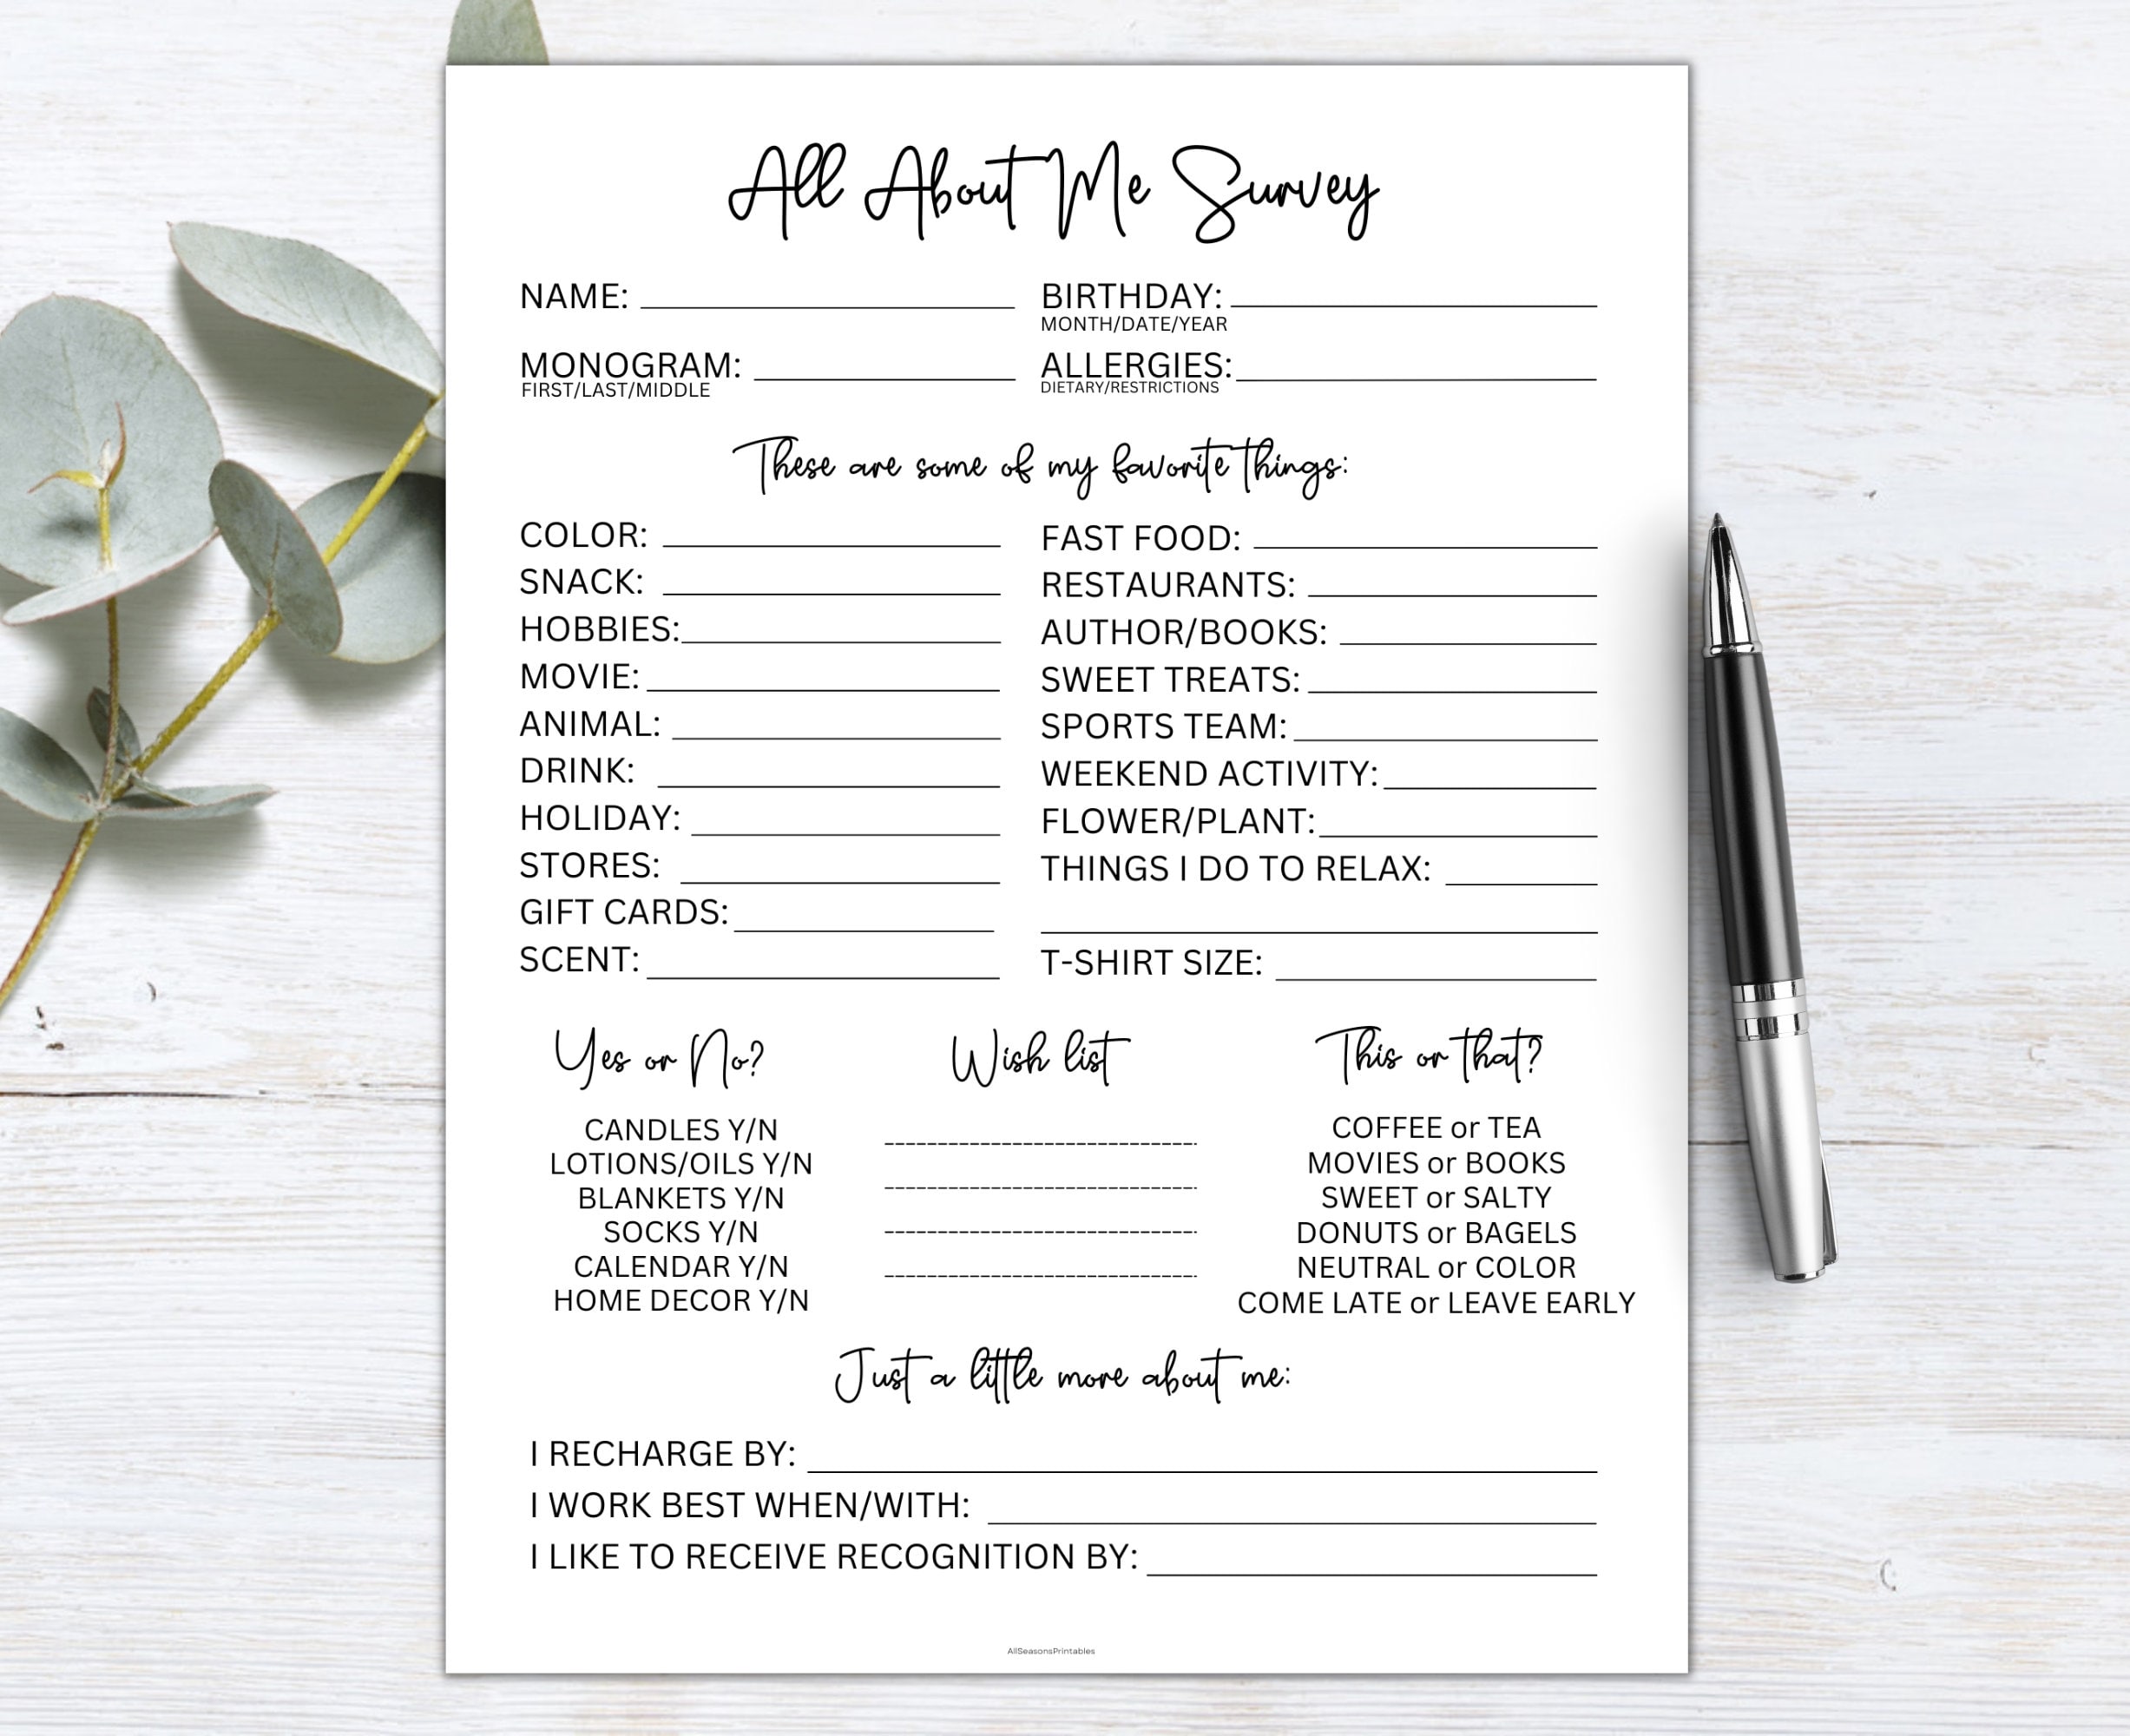 All About Me Survey
NAME:
BIRTHDAY:
MONTH/DATE/YEAR
MONOGRAM:
FIRST/LAST/MIDDLE
ALLERGIES:
DIETARY/RESTRICTIONS
These are some of my favorite things:
COLOR:
SNACK:
HOBBIES:
MOVIE:
ANIMAL:
DRINK:
HOLIDAY:
STORES:
GIFT CARDS:
SCENT:
FAST FOOD:
RESTAURANTS:
AUTHOR/BOOKS:
SWEET TREATS:
SPORTS TEAM:
WEEKEND ACTIVITY:
FLOWER/PLANT:
THINGS I DO TO RELAX:
T-SHIRT SIZE:
Yes or No?
CANDLES Y/N
LOTIONS/OILS Y/N
BLANKETS Y/N
SOCKS Y/N
CALENDAR Y/N
HOME DECOR Y/N
Wish list
This or that?
COFFEE or TEA
MOVIES or BOOKS
SWEET or SALTY
DONUTS or BAGELS
NEUTRAL or COLOR
COME LATE or LEAVE EARLY
Just a little more about me:
I RECHARGE BY:
I WORK BEST WHEN/WITH:
I LIKE TO RECEIVE RECOGNITION BY:
AllSeasonsPrintables